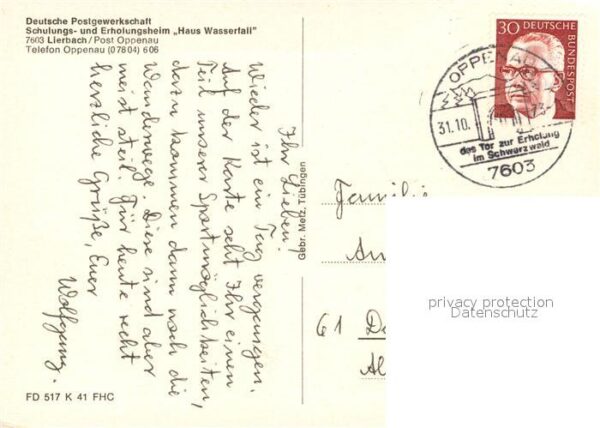 Deutsche Postgewerkschaft
Schulungs- und Erholungsheim „Haus Wasserfall"
7603 Lierbach/Post Oppenau
Telefon Oppenau (07804) 606
Ihr Lieben!
Wieder ist ein Tag vergangen.
Auf der Karte seht Ihr einen
Teil unserer Sportmöglichkeiten,
dazu kommen dann noch die
Wanderwege. Diese sind aber
meist steil. Für heute recht
herzliche Grüße, Euer
Wolfgang.
FD 517 K 41 FHC
Gebr. Metz, Tübingen
30 DEUTSCHE
BUNDESPOST
OPPENAU
31.10.
73
das Tor zur Erholung
im Schwarzwald
7603
Familie
An
61 Da
Al
privacy protection
Datenschutz